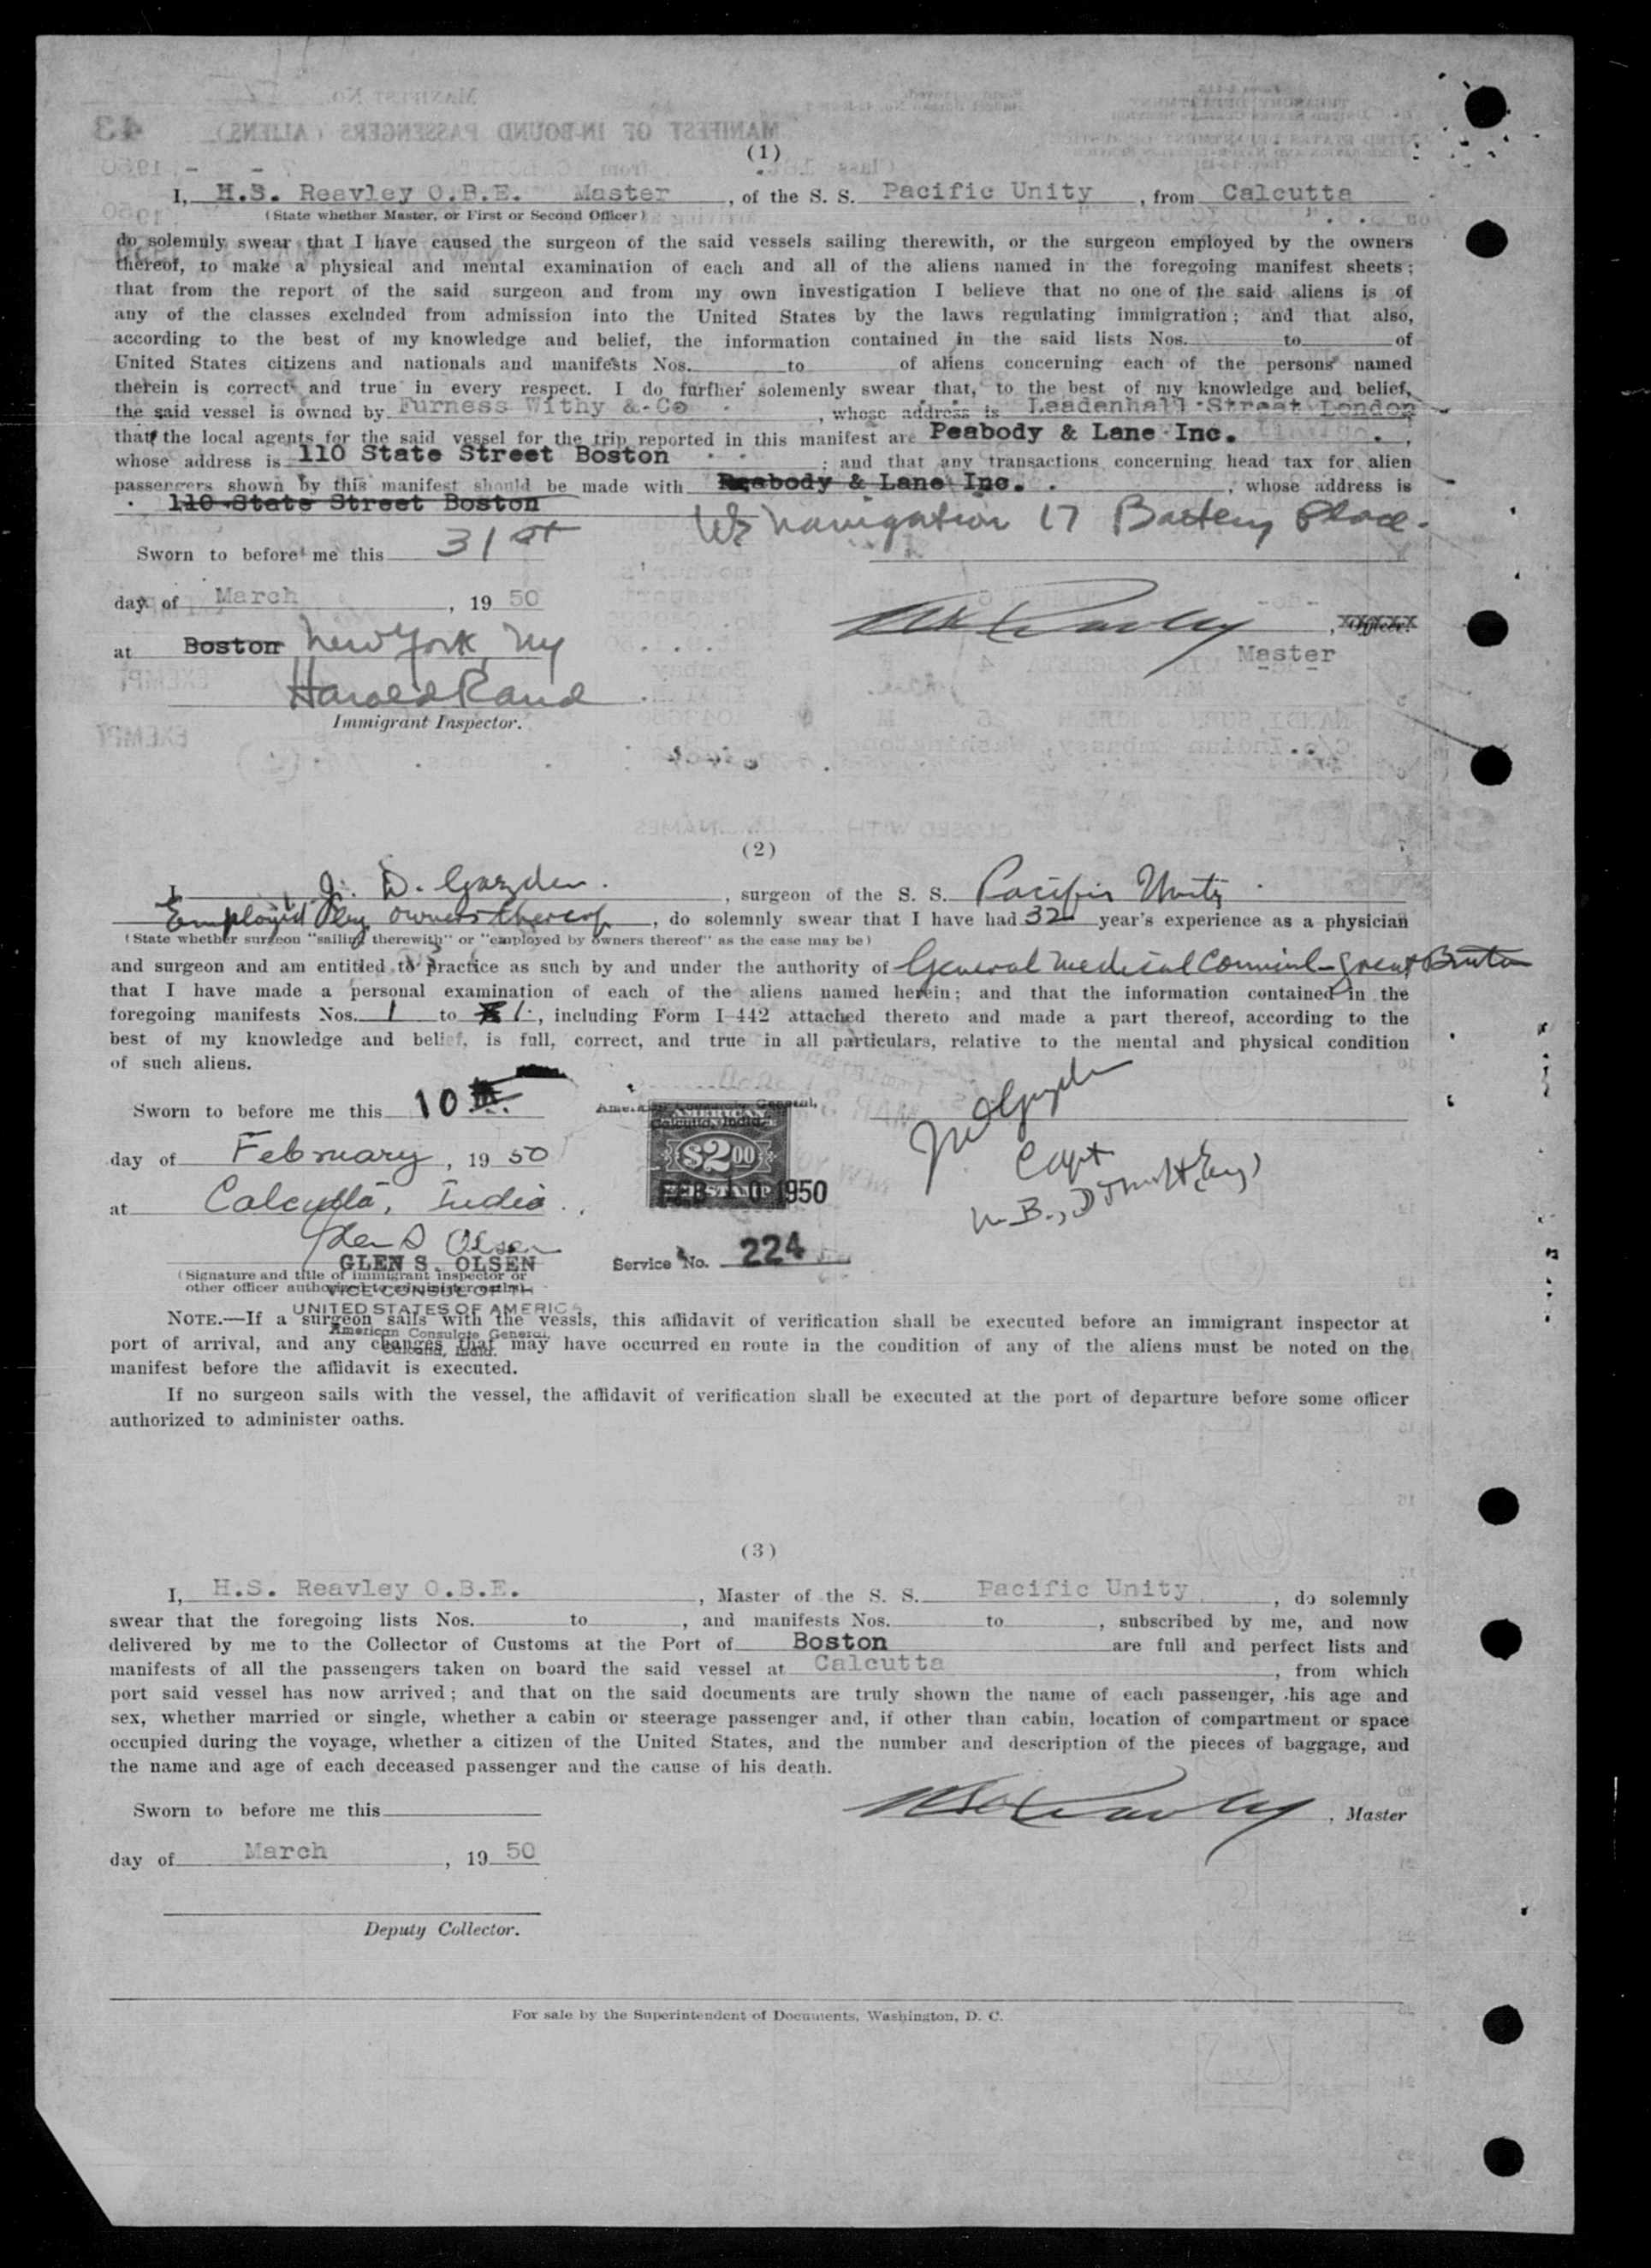 (1)
I, H.S. Reavley O.B.E. Master, of the S. S. Pacific Unity, from Calcutta
(State whether Master, or First or Second Officer)
do solemnly swear that I have caused the surgeon of the said vessels sailing therewith, or the surgeon employed by the owners
thereof, to make a physical and mental examination of each and all of the aliens named in the foregoing manifest sheets;
that from the report of the said surgeon and from my own investigation I believe that no one of the said aliens is of
any of the classes excluded from admission into the United States by the laws regulating immigration; and that also,
according to the best of my knowledge and belief, the information contained in the said lists Nos. to of
United States citizens and nationals and manifests Nos. to of aliens concerning each of the persons named
therein is correct and true in every respect. I do further solemenly swear that, to the best of my knowledge and belief,
the said vessel is owned by Furness Withy & Co, whose address is Leadenhall Street London
that the local agents for the said vessel for the trip reported in this manifest are Peabody & Lane Inc.,
whose address is 110 State Street Boston; and that any transactions concerning head tax for alien
passengers shown by this manifest should be made with Peabody & Lane Inc., whose address is
110 State Street Boston
Navigation 17 Battery Place.
Sworn to before me this 31st
day of March, 19 50
at Boston New York, NY
, Officer.
Master
Harold Rand
Immigrant Inspector.
(2)
I, J. D. , surgeon of the S. S. Pacific Unity
Employed by owners thereof, do solemnly swear that I have had 32 year's experience as a physician
(State whether surgeon "sailing therewith" or "employed by owners thereof" as the case may be)
and surgeon and am entitled to practice as such by and under the authority of General Medical Council - Great Britain
that I have made a personal examination of each of the aliens named herein; and that the information contained in the
foregoing manifests Nos. 1 to 1, including Form I-442 attached thereto and made a part thereof, according to the
best of my knowledge and belief, is full, correct, and true in all particulars, relative to the mental and physical condition
of such aliens.
Sworn to before me this 10th
American Consulate General,
Calcutta, India
AMERICAN
$2.00
FEE STAMP
FEB 10 1950
day of February, 19 50
Capt
at Calcutta, India
Glen S Olsen
GLEN S. OLSEN
Service No. 224
(Signature and title of immigrant inspector or
other officer authorized to administer oaths)
VICE CONSUL OF THE
UNITED STATES OF AMERICA
American Consulate General,
Calcutta, India.
NOTE.—If a surgeon sails with the vessls, this affidavit of verification shall be executed before an immigrant inspector at
port of arrival, and any changes that may have occurred en route in the condition of any of the aliens must be noted on the
manifest before the affidavit is executed.
If no surgeon sails with the vessel, the affidavit of verification shall be executed at the port of departure before some officer
authorized to administer oaths.
(3)
I, H.S. Reavley O.B.E., Master of the S. S. Pacific Unity, do solemnly
swear that the foregoing lists Nos. to , and manifests Nos. to , subscribed by me, and now
delivered by me to the Collector of Customs at the Port of Boston are full and perfect lists and
manifests of all the passengers taken on board the said vessel at Calcutta, from which
port said vessel has now arrived; and that on the said documents are truly shown the name of each passenger, his age and
sex, whether married or single, whether a cabin or steerage passenger and, if other than cabin, location of compartment or space
occupied during the voyage, whether a citizen of the United States, and the number and description of the pieces of baggage, and
the name and age of each deceased passenger and the cause of his death.
Sworn to before me this
, Master
day of March, 19 50
Deputy Collector.
For sale by the Superintendent of Documents, Washington, D. C.